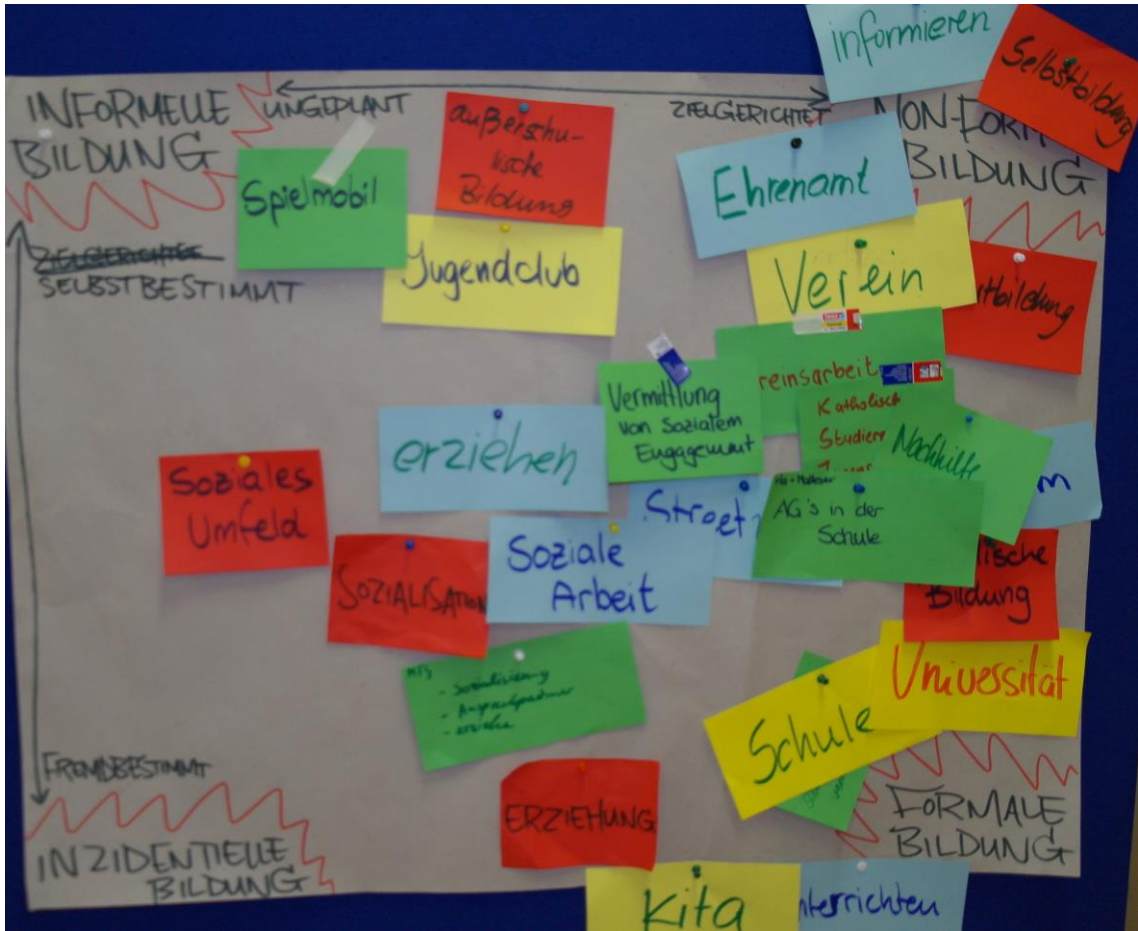 informieren
Selbstbildung
INFORMELLE
BILDUNG
UNGEPLANT
ZIELGERICHTET
NON-FORM
BILDUNG
außerschu-
lische
Bildung
Spielmobil
Ehrenamt
ZIELGERICHTET
SELBSTBESTIMMT
Jugendclub
Verein
tbildung
reinsarbeit
Vermittlung
von Sozialem
Engagement
Katholisch
Studiere
Nachhilfe
erziehen
Soziales
Umfeld
Street
m
AG's in der
Schule
Soziale
Arbeit
lische
Bildung
SOZIALISATION
- Sozialisierung
- Ansprechpartner
- erziehen
Universität
Schule
FREMDBESTIMMT
ERZIEHUNG
FORMALE
BILDUNG
INZIDENTIELLE
BILDUNG
Kita
nterrichten